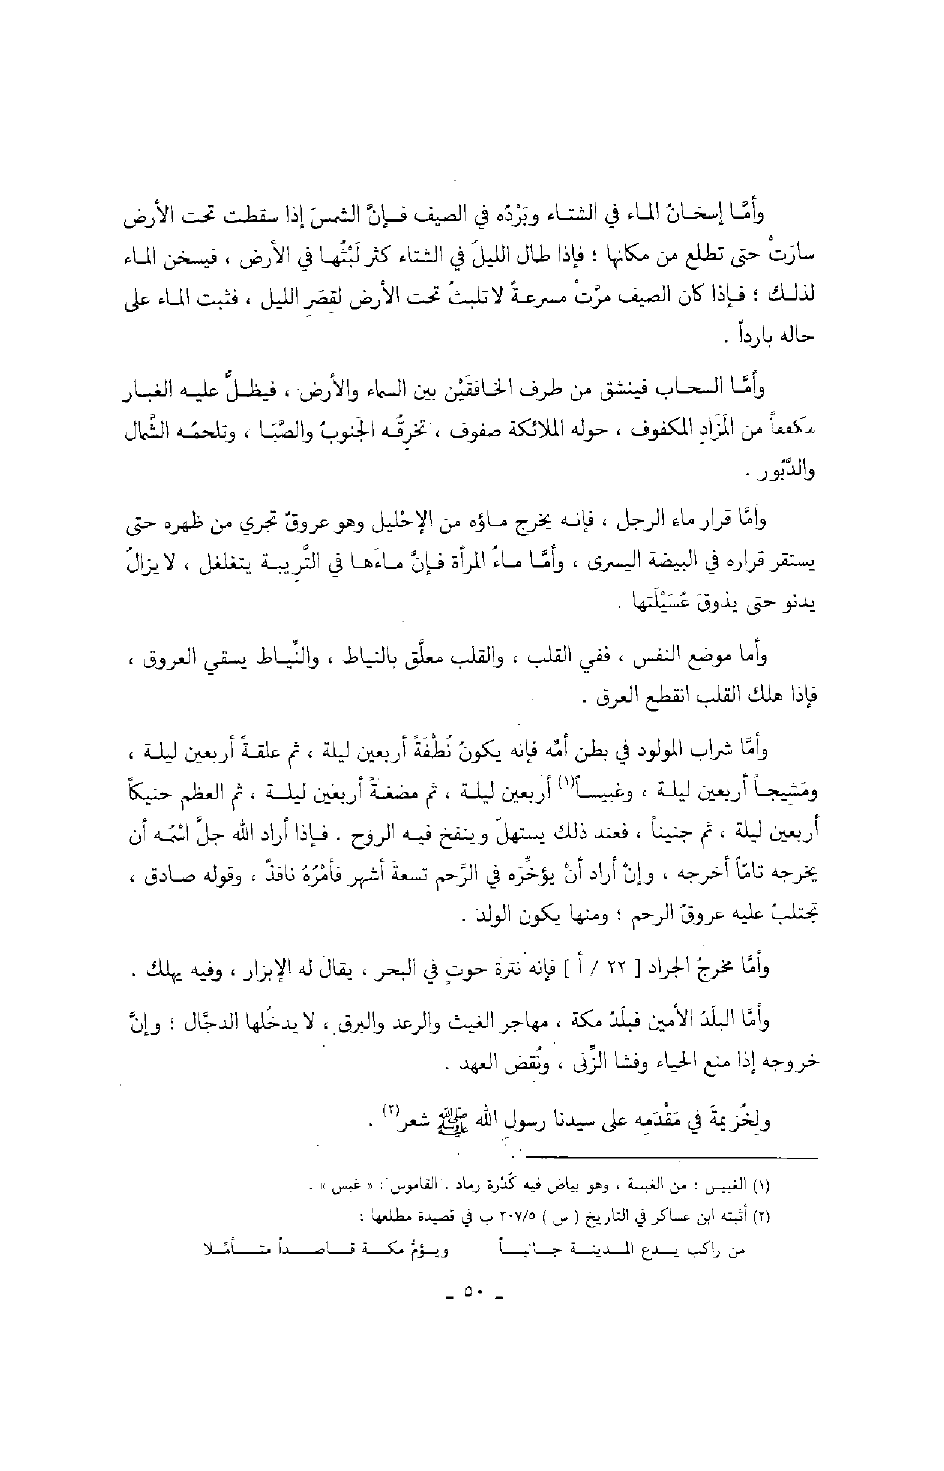 وأمَّا إسخانُ الماء في الشتاء وبَرْدُه في الصيف فإنَّ الشمسَ إذا سقطت تحت الأرض
سارَتْ حتى تطلع من مكانها ؛ فإذا طال الليلُ في الشتاء كثر لَبْثُها في الأرض ، فيسخن الماء
لذلك ؛ فإذا كان الصيف مرَّتْ مسرعةً لا تلبثُ تحت الأرض لقصَرِ الليل ، فثبت الماء على
حاله بارداً .
وأمَّا السحاب فينشق من طرف الخافقَيْن بين السماء والأرض ، فيظلُّ عليه الغبار
مكففاً من المَزَادِ المكفوف ، حوله الملائكة صفوف ، تخرقُه الجَنوبُ والصَّبَا ، وتلحمُه الشَّمال
والدَّبور .
وأمَّا قرار ماء الرجل ، فإنه يخرج ماؤه من الإحْليل وهو عروقٌ تجري من ظهره حتى
يستقر قراره في البيضة اليسرى ، وأمَّا ماءُ المرأة فإنَّ ماءَها في التَّريبة يتغلغل ، لا يزالُ
يدنو حتى يذوقَ عُسَيْلَتها .
وأما موضع النفس ، ففي القلب ، والقلب معلَّق بالنياط ، والنِّياط يسقي العروق ،
فإذا هلك القلب انقطع العرق .
وأمَّا شراب المولود في بطن أمِّه فإنه يكونُ نُطْفَةً أربعين ليلة ، ثم علقةً أربعين ليلة ،
ومَشيجاً أربعين ليلة ، وغبيساً(١) أربعين ليلة ، ثم مضغةً أربعين ليلة ، ثم العظم حنيكاً
أربعين ليلة ، ثم جنيناً ، فعند ذلك يستهلّ وينفخ فيه الروح . فإذا أراد الله جلَّ اسْمُه أن
يخرجه تامّاً أخرجه ، وإنْ أراد أنْ يؤخِّرَه في الرَّحم تسعةَ أشهر فأمْرُهُ نافذٌ ، وقوله صادق ،
تجتلبُ عليه عروقُ الرحم ؛ ومنها يكون الولد .
وأمَّا مخرجُ الجراد [ ٢٢ / أ ] فإنه نَثرة حوتٍ في البحر ، يقال له الإبزار ، وفيه يهلك .
وأمَّا البلَدُ الأمين فبلَدُ مكة ، مهاجر الغيث والرعد والبرق ، لا يدخُلها الدجَّال ؛ وإنَّ
خروجه إذا منع الحياء وفشا الزِّنى ، ونُقض العهد .
ولخُزيمةَ في مَقْدَمِه على سيدنا رسول الله ﷺ شعر(٢) .
(١) الغبيس : من الغبسة ، وهو بياض فيه كُدْرة رماد . القاموس : « غبس » .
(٢) أثبته ابن عساكر في التاريخ ( س ) ٢٠٧/٥ ب في قصيدة مطلعها :
من راكب يدع المدينة جانباً ويؤمُّ مكة قاصداً متأملا
ـ ٥٠ ـ